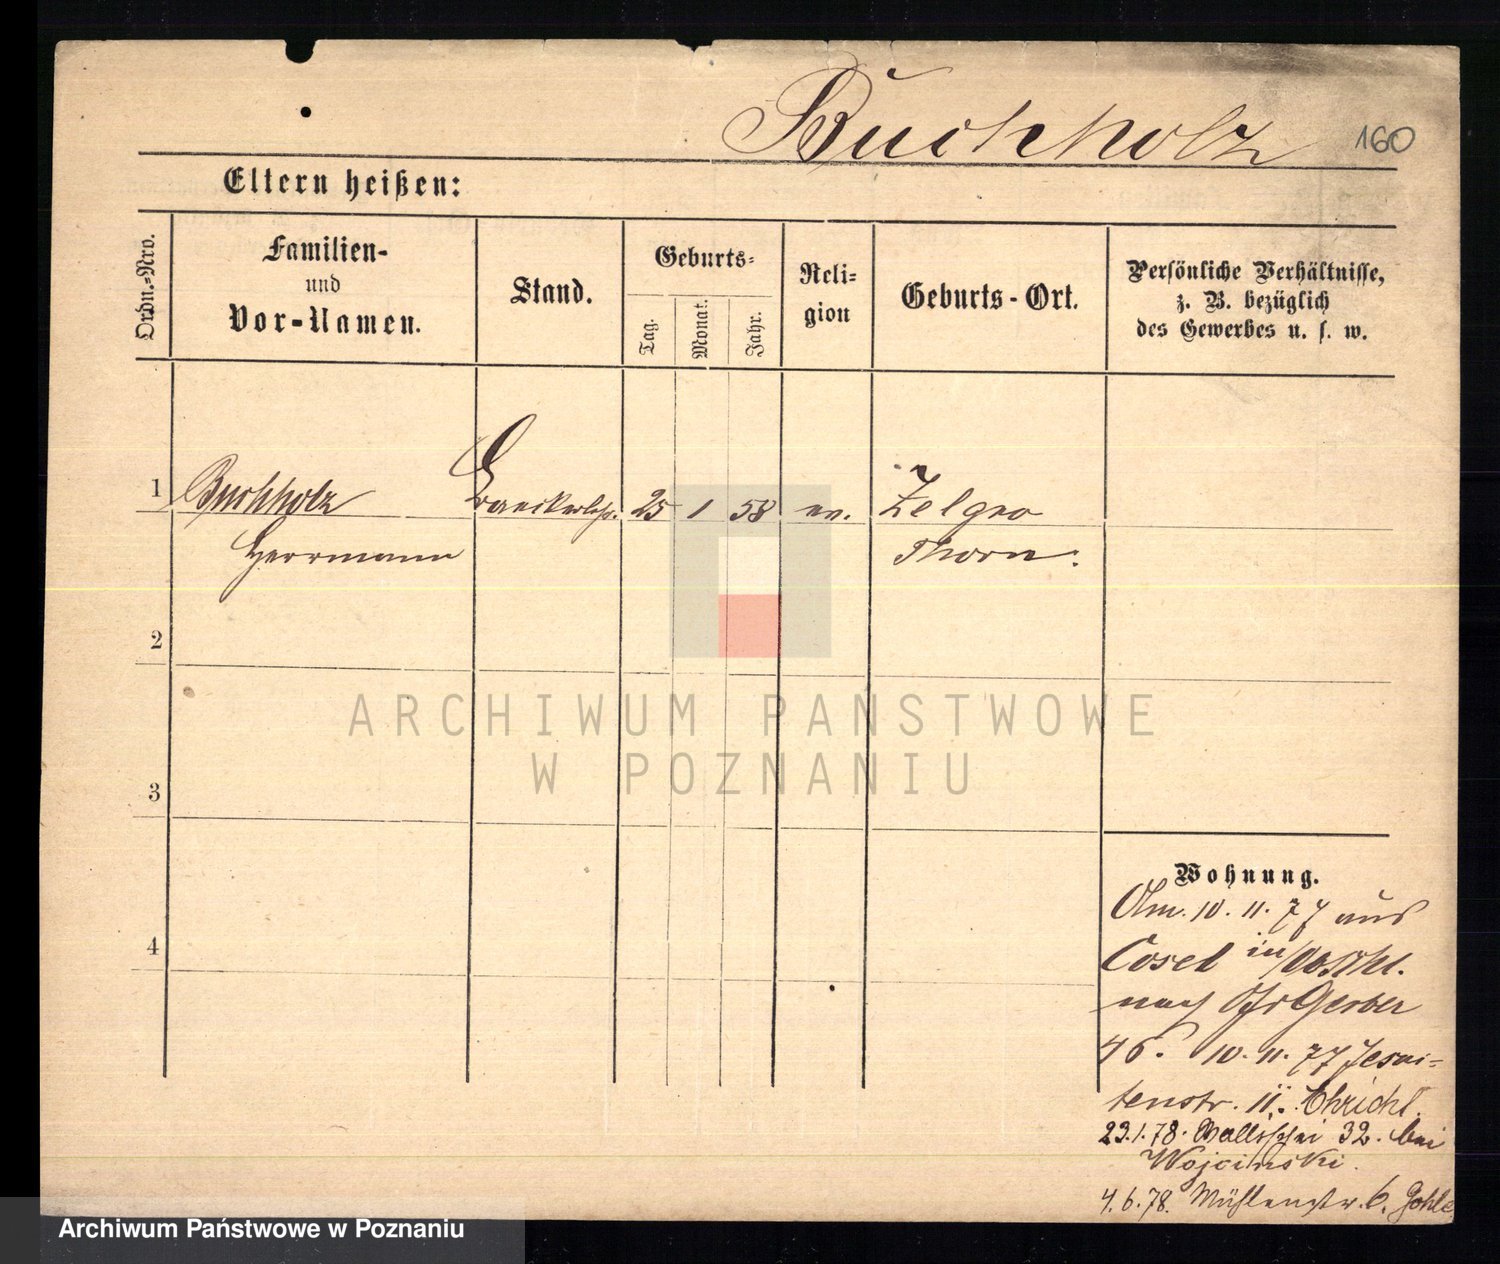 Buchholz 160
Eltern heißen:
Ordn.-Nro.
Familien-
und
Vor-Namen.
Stand.
Geburts-
Tag.
Monat.
Jahr.
Reli-
gion
Geburts-Ort.
Persönliche Verhältnisse,
z. B. bezüglich
des Gewerbes u. s. w.
1 Buchholz 25 1 58 ev. Zelgno
Herrmann Thorn.
2
3
4
ARCHIWUM PAŃSTWOWE
W POZNANIU
Wohnung.
Am. 10. 11. 77 aus
Cosel in
nach Gr Gerber
46. 10. 11. 77 Jesui-
tenstr. 11.
23.1.78. Wallischei 32. bei
Wojcinski.
4.6.78. Mühlenstr. 6. Gohle
Archiwum Państwowe w Poznaniu